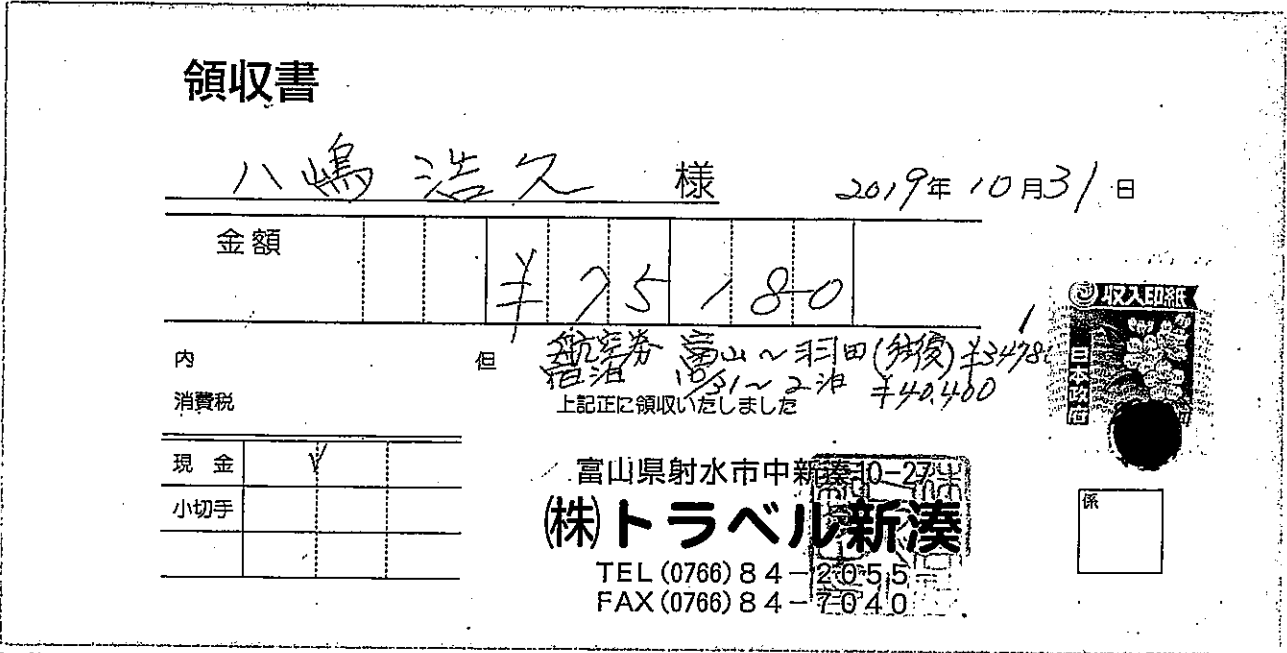 領収書
八嶋 浩久 様 2019年10月31日
金額 ¥75180
収入印紙
日本政府
内 但 航空券 富山~羽田(往復)¥34,780
消費税 宿泊 10/31~2泊 ¥40,400
上記正に領収いたしました
現金 ✓
小切手
富山県射水市中新湊10-27
(株)トラベル新湊
TEL(0766)84-2055
FAX(0766)84-7040
係